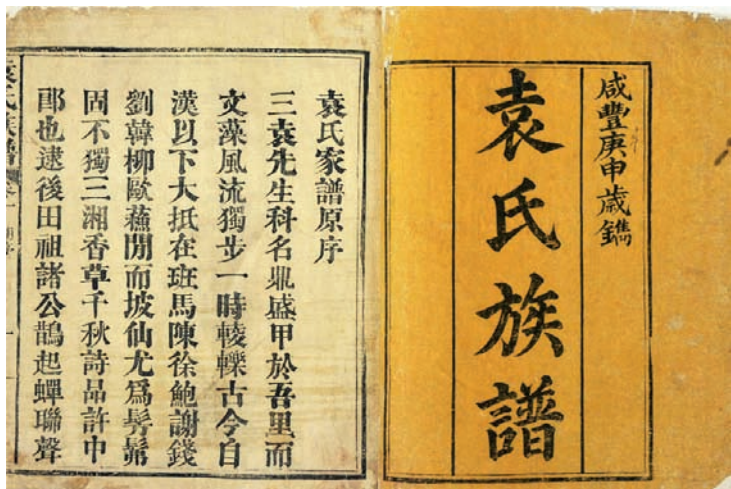 咸豐庚申歲鐫
袁氏族譜
袁氏家譜原序
三袁先生科名鼎盛甲於吾里而
文藻風流獨步一時輘轢古今自
漢以下大抵在班馬陳徐鮑謝錢
劉韓柳歐蘇閒而坡仙尤爲髣髴
固不獨三湘香草千秋詩品許中
郎也逮後田祖諸公鵲起蟬聯聲
袁氏族譜